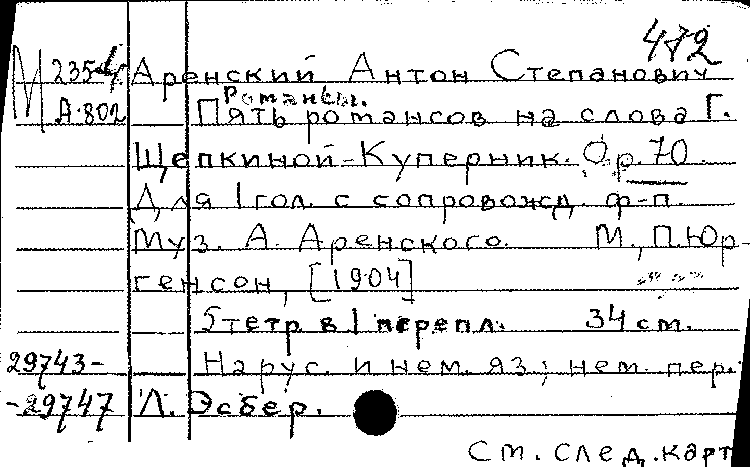 472
М 235-4 Аренский Антон Степанович
Романсы.
А-802 Пять романсов на слова Г.
Щепкиной-Куперник. Op. 70.
Для 1 гол. с сопровожд. ф-п.
Муз. А. Аренского. М., П. Юр-
генсон, [1904]
5 тетр в 1 перепл. 34 см.
29743- На рус. и нем. яз.; нем. пер.
-29747 Л. Эсбер.
См. след. карт